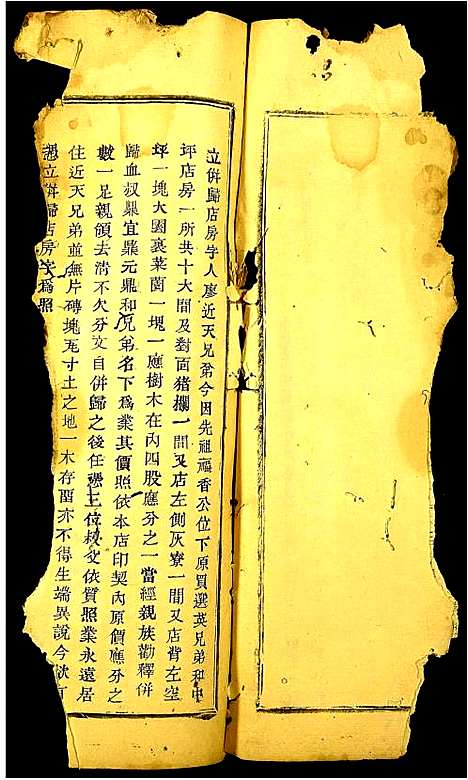 立併歸店房字人廖近天兄弟今因先祖福香公位下原買選英兄弟和中
坪店房一所共十大間及對面猪欄一間又店左側灰寮一間又店背左空
坪一塊大圳裏菜園一塊一應樹木在內四股應分之一當經親族勸釋併
歸血叔鼎宜鼎元鼎和兄弟名下為業其價照依本店印契內原價應分之
數一足親領去清不欠分文自併歸之後任憑三位叔父依質照業永遠居
住近天兄弟並無片磚塊瓦寸土之地一木存留亦不得生端異說今欲
憑立併歸店房字為照